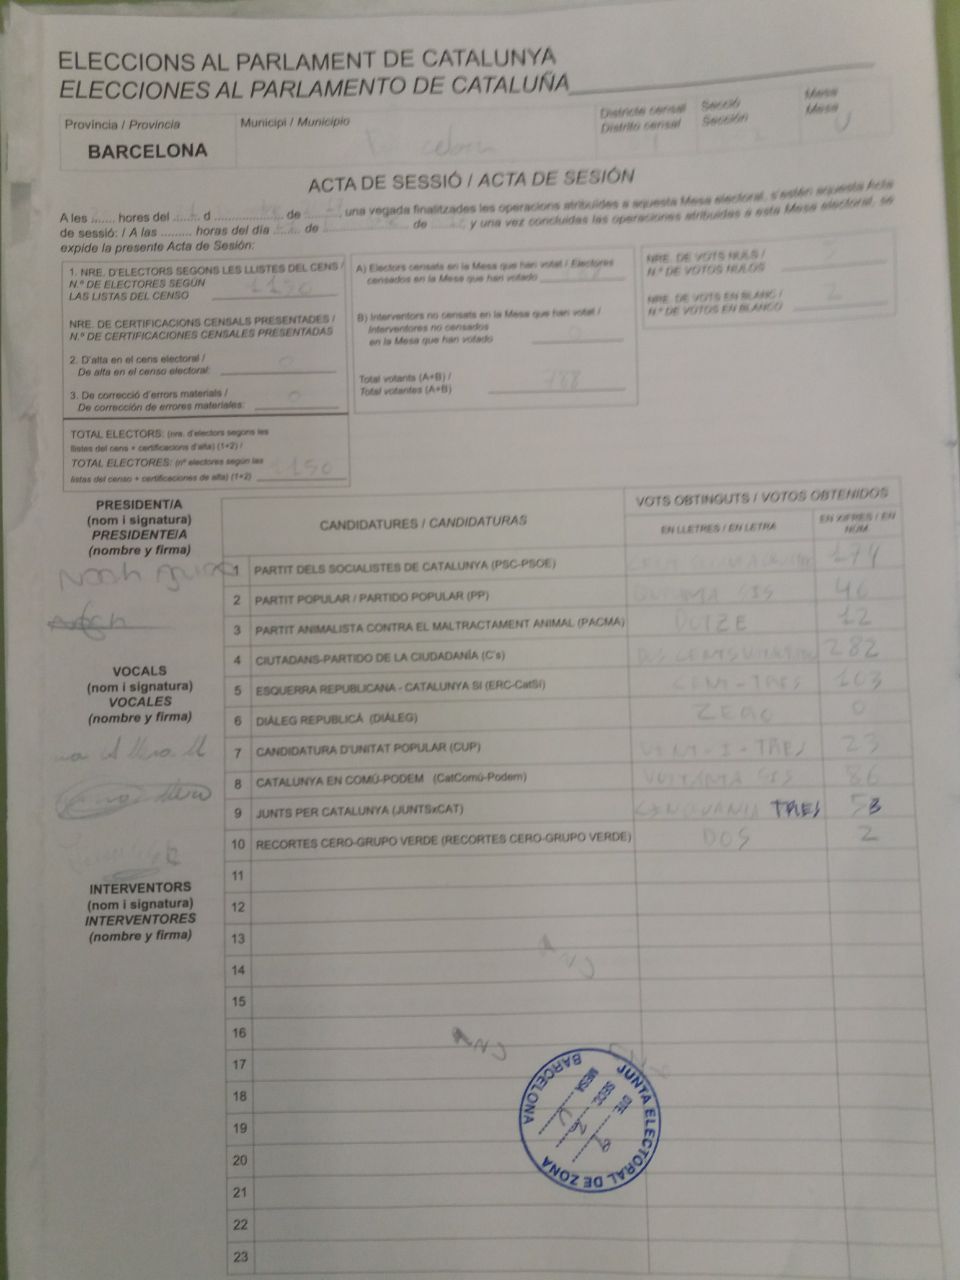 ELECCIONS AL PARLAMENT DE CATALUNYA
ELECCIONES AL PARLAMENTO DE CATALUÑA
Província / Provincia
BARCELONA
Municipi / Municipio
Districte censal
Distrito censal
Secció
Sección
Mesa
Mesa
U
ACTA DE SESSIÓ / ACTA DE SESIÓN
A les ....... hores del ....... d ................ de ....... una vegada finalitzades les operacions atribuïdes a aquesta Mesa electoral, s'estén aquesta Acta
de sessió: / A las ......... horas del día ....... de ................ de ....... y una vez concluidas las operaciones atribuidas a esta Mesa electoral, se
expide la presente Acta de Sesión:
1. NRE. D'ELECTORS SEGONS LES LLISTES DEL CENS /
N.º DE ELECTORES SEGÚN
LAS LISTAS DEL CENSO 1150
NRE. DE CERTIFICACIONS CENSALS PRESENTADES /
N.º DE CERTIFICACIONES CENSALES PRESENTADAS
2. D'alta en el cens electoral /
De alta en el censo electoral: 0
3. De correcció d'errors materials /
De corrección de errores materiales: 0
TOTAL ELECTORS: (nre. d'electors segons les
llistes del cens + certificacions d'alta) (1+2) /
TOTAL ELECTORES: (nº electores según las
listas del censo + certificaciones de alta) (1+2) 1150
A) Electors censats en la Mesa que han votat / Electores
censados en la Mesa que han votado
B) Interventors no censats en la Mesa que han votat /
Interventores no censados
en la Mesa que han votado 0
Total votants (A+B) /
Total votantes (A+B) 788
NRE. DE VOTS NULS /
N.º DE VOTOS NULOS
NRE. DE VOTS EN BLANC /
N.º DE VOTOS EN BLANCO 2
PRESIDENT/A
(nom i signatura)
PRESIDENTE/A
(nombre y firma)
VOCALS
(nom i signatura)
VOCALES
(nombre y firma)
INTERVENTORS
(nom i signatura)
INTERVENTORES
(nombre y firma)
CANDIDATURES / CANDIDATURAS
VOTS OBTINGUTS / VOTOS OBTENIDOS
EN LLETRES / EN LETRA
EN XIFRES / EN NÚM.
1 PARTIT DELS SOCIALISTES DE CATALUNYA (PSC-PSOE) 174
2 PARTIT POPULAR / PARTIDO POPULAR (PP) SIS 46
3 PARTIT ANIMALISTA CONTRA EL MALTRACTAMENT ANIMAL (PACMA) DOTZE 12
4 CIUTADANS-PARTIDO DE LA CIUDADANÍA (C's) 282
5 ESQUERRA REPUBLICANA - CATALUNYA SÍ (ERC-CatSí) CENT-TRES 103
6 DIÀLEG REPUBLICÀ (DIÀLEG) ZERO 0
7 CANDIDATURA D'UNITAT POPULAR (CUP) VINT-I-TRES 23
8 CATALUNYA EN COMÚ-PODEM (CatComú-Podem) VUITANTA SIS 86
9 JUNTS PER CATALUNYA (JUNTSxCAT) CINQUANTA TRES 53
10 RECORTES CERO-GRUPO VERDE (RECORTES CERO-GRUPO VERDE) DOS 2
11
12
13
14
15
16
17
18
19
20
21
22
23
JUNTA ELECTORAL DE ZONA
BARCELONA
DTE.
SECC.
MESA